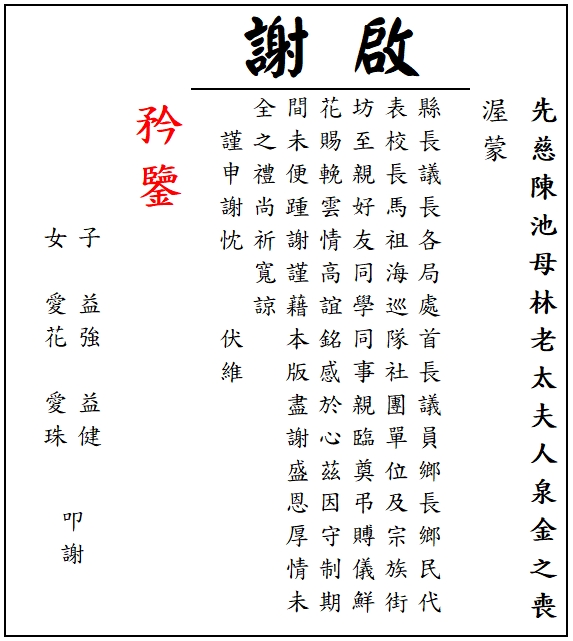 謝啟
先慈陳池母林老太夫人泉金之喪
渥蒙
縣長議長各局處首長議員鄉長鄉民代
表校長馬祖海巡隊社團單位及宗族街
坊至親好友同學同事親臨奠弔賻儀鮮
花賜輓雲情高誼銘感於心茲因守制期
間未便踵謝謹藉本版盡謝盛恩厚情未
全之禮尚祈寬諒
謹申謝忱 伏維
矜鑒
子 益強 益健
女 愛花 愛珠
叩謝